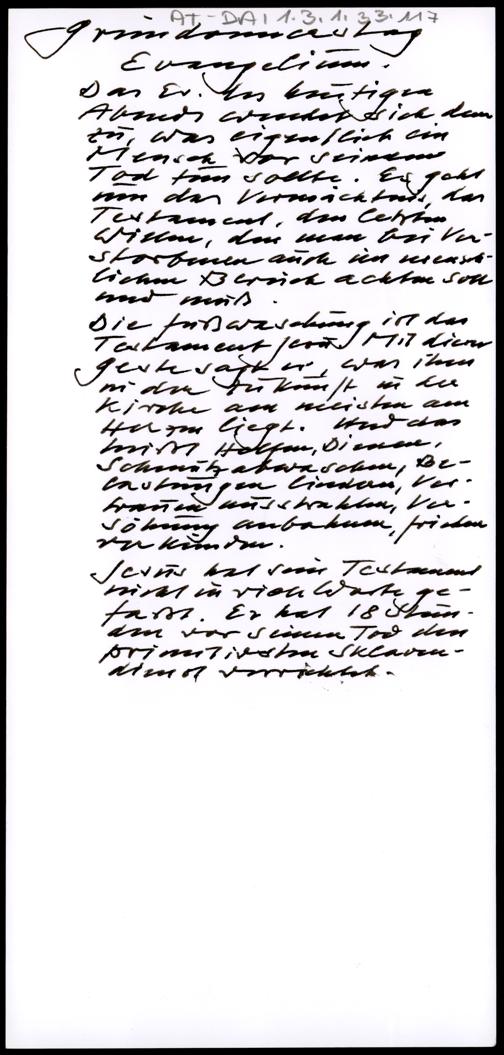 AT-DA 1.3.1.33.117
Gründonnerstag
Evangelium.
Das Ev. des heutigen
Abends wendet sich dem
zu, was eigentlich ein
Mensch vor seinem
Tod tun sollte. Es geht
um das Vermächtnis, das
Testament, den letzten
Willen, den man bei Ver-
storbenen auch im mensch-
lichen Bereich achten soll
und muß.
Die Fußwaschung ist das
Testament Jesu. Mit dieser
Geste sagt er, was ihm
in der Zukunft in der
Kirche am meisten am
Herzen liegt. Und das
heißt Helfen, Dienen,
Schmutz abwaschen, Be-
lastungen lindern, Ver-
trauen ausstrahlen, Ver-
söhnung anbahnen, Frieden
verkünden.
Jesus hat sein Testament
nicht in viele Worte ge-
faßt. Er hat 18 Stun-
den vor seinem Tod den
primitivsten Sklaven-
dienst verrichtet.